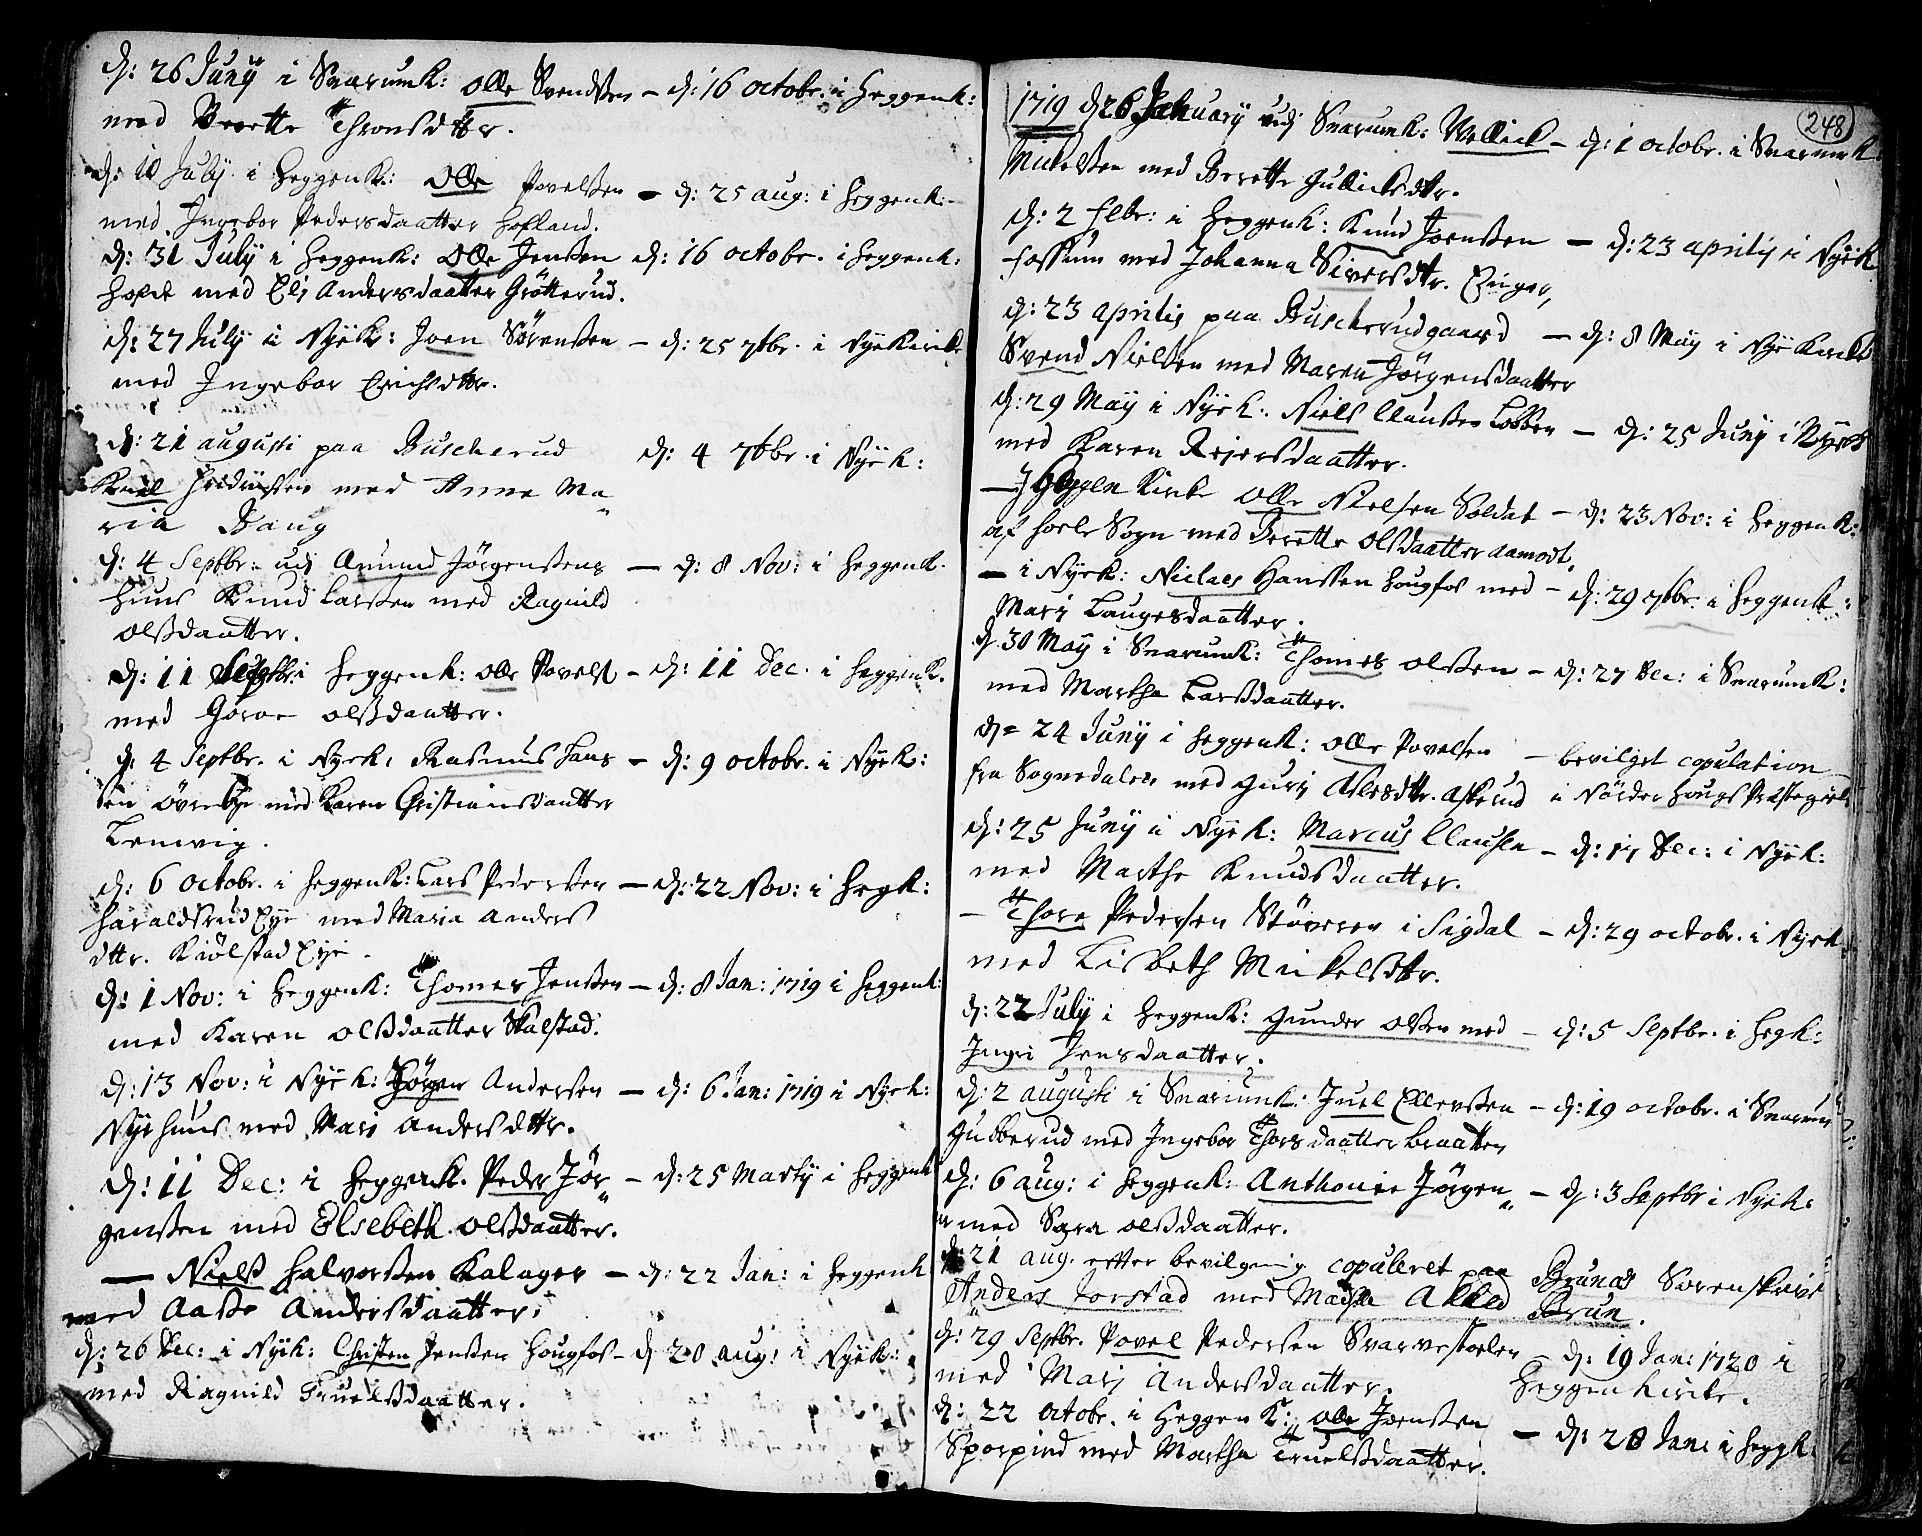 d: 26 Junÿ i Snarumk: Olle Svendsen – d: 16 octobr. i Heggenk:
med Berette Thronsdttr.
d: 10 July i Heggenk: Olle Povelsen – d: 25 aug: i Heggenk:
med Ingebor Pedersdaatter Hofland.
d: 31 July i Heggenk: Olle Jensen d: 16 octobr. i Heggenk:
med Els Andersdaatter Grötterud.
d: 27 July i Nyek: Joen Sörensen – d: 25 7tbr. i Nyekircke
med Ingebor Erichsdttr.
d: 21 augusti paa Buscherud d: 4 7tbr. i Nÿek:
med Anna Ma„
ria Baug
d: 4 Septbr: udj Amund Jörgensens – d: 8 Nov: i Heggenk.
Huus Knud Larsen med Ragnild
olsdaatter.
d: 11 i Heggenk: olle Povels – d: 11 Dec. i Heggenk.
med Goroe olsdaatter.
d: 4 Septbr. i Nyek: Rasmus Hans – d: 9 octobr. i Nÿek:
sen med Karen Christiansdaatter
Lemvig.
d: 6 octobr. i Heggenk: Lars Pedersen – d: 22 Nov: i Hegk:
Haraldsrud Eye med Maria Anders
dttr. Kiölstad Eye.
d: 1 Nov: i Heggenk: Thomes Jensen – d: 8 Jan: 1719 i Heggenk:
med Karen olsdaatter Skalstad.
d: 13 Nov: i Nÿek: Jörgen Andersen – d: 6 Jan: 1719 i Nyek:
Nyehuus med Mari Andersdttr.
d: 11 Dec: i Heggenk. Peder Jör„ – d: 25 Martÿ i Heggenk
gensen med Elsebeth olsdaatter.
— Niels Halvorsen Kalager – d: 22 Jan: i Heggenk
med Aase Andersdaatter.
d: 26 Dec: i Nyek: Christen Jensen Hougfos – d 20 aug: i Nyek:
med Ragnild Truelsdaatter.
248
1719 d 26 January udj Snarumk: Wellick – d: 1 octobr. i Snarumk:
Mickelsen med Berette Gullicksdtr.
d: 2 Febr: i Heggenk: Knud Joensen – d: 23 aprilÿ i Nÿek
Fossum med Johanna Siversdtr. Einger,
d: 23 aprilis paa Buscherudgaard – d: 8 Maÿ i Nye Kircke
Svend Nielsen med Maren Jörgensdaatter
d: 29 Maÿ i Nÿek: Niels Clausen Lobben – d: 25 Junÿ i Nÿek
med Karen Reiersdaatter.
— J Heggen Kircke Olle Nielsen Soldat – d: 23 Nov: i Heggenk:
af Hole Sogn med Berette Olsdaatter aamodt.
— i Nyek: Niclaes Hansen Hougfos med – d: 29 7tbr. i Heggenk:
Mari Laugesdaatter.
d. 30 Maÿ i Snarumk: Thomes olsen – d: 27 Dec: i Snarumk:
med Martha Larsdaatter.
d= 24 Junÿ i Heggenk: olle Povelsen – bevilget copulation
fra Sognedalen med Guri Askerud i Nörderhougs Prästegield
d: 25 Junÿ i Nÿek: Marcus Clausen – d: 17 Dec: i Nÿek:
med Marthe Knudsdaatter.
— Thore Pedersen Stöveren i Sigdal – d: 29 octobr. i Nyek
med Lisbeth Mickelsdtr.
d: 22 July i Heggenk: Gunder olsen med – d: 5 Septbr. i Hegk:
Ingri Jensdaatter.
d: 2 augusti i Snarumk: Juel Ellevsen – d: 19 octobr. i Snarum
Gubberud med Ingebor Thorsdaatter Braatten
d: 6 aug: i Heggenk: Anthonie Jörgen„ – d: 3 Septbr i Nyek:
med Sara olsdaatter.
d: 21 aug. efter bevilgning copuleret paa Brunæs Sorenskriver
Anders Jorstad med Brun.
d: 29 Septbr. Povel Pedersen Svarvestoelen – d: 19 Jan: 1720 i
med Mari Andersdaatter. Heggen Kircke.
d: 22 octobr. i Heggen K: olle Joensen – d: 28 Jan: i Heggk:
Sporpind med Martha Truelsdaatter.